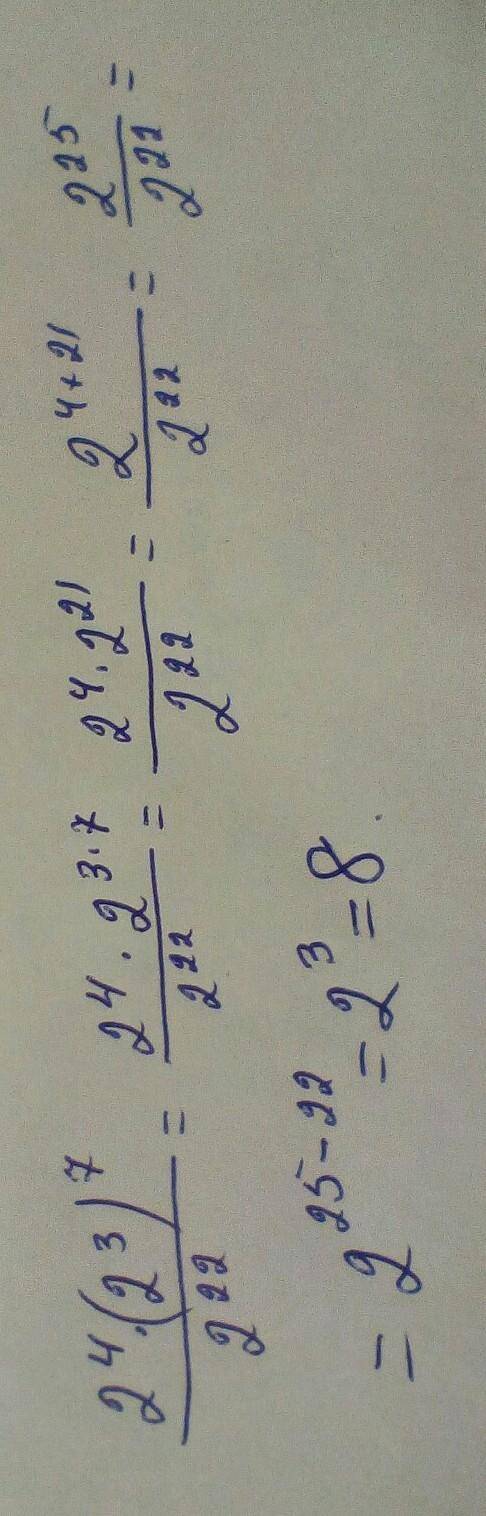 2⁴·(2³)⁷/2²² = 2⁴·2³·⁷/2²² = 2⁴·2²¹/2²² = 2⁴⁺²¹/2²² = 2²⁵/2²² =
= 2²⁵⁻²² = 2³ = 8.